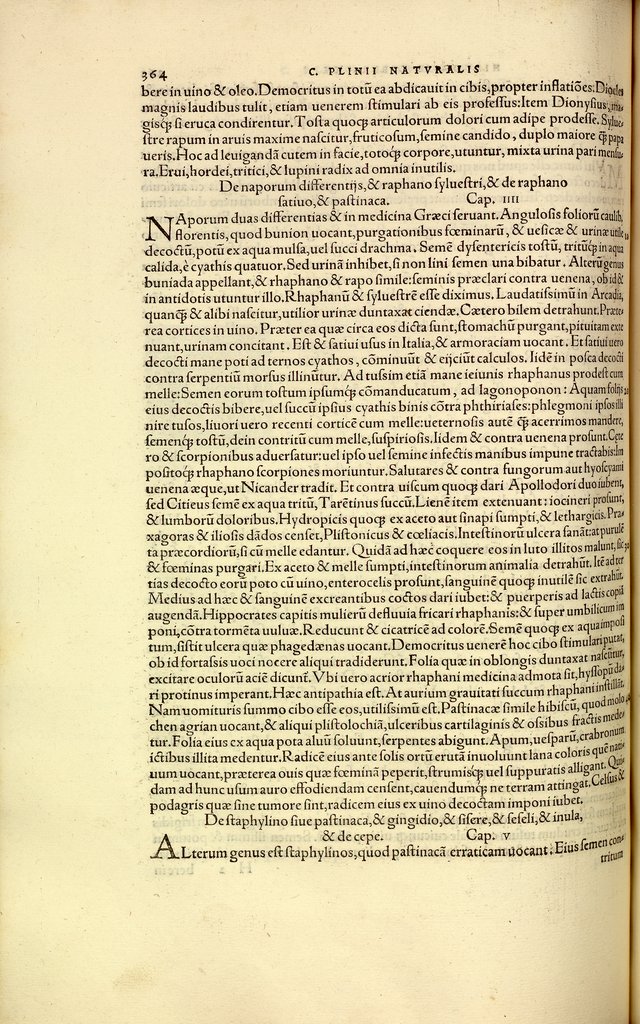 364 C. PLINII NATVRALIS
bere in uino & oleo. Democritus in totū ea abdicauit in cibis, propter inflatiões: Diocles
magnis laudibus tulit, etiam uenerem ſtimulari ab eis profeſſus: Item Dionyſius,
giſq̃ ſi eruca condirentur. Toſta quoq̃ articulorum dolori cum adipe prodeſſe. Sylue
ſtre rapum in aruis maxime naſcitur, fruticoſum, ſemine candido, duplo maiore q̃ papa
ueris. Hoc ad leuigandā cutem in facie, totoq̃ corpore, utuntur, mixta urina pari menſu
ra. Erui, hordei, tritici, & lupini radix ad omnia inutilis.
De naporum differentijs, & raphano ſylueſtri, & de raphano
ſatiuo, & paſtinaca. Cap. IIII
NAporum duas differentias & in medicina Græci ſeruant. Anguloſis foliorū caulib,
florentis, quod bunion uocant, purgationibus fœminarū, & ueſicæ & urinæ utile
decoctū, potū ex aqua mulſa, uel ſucci drachma. Semē dyſentericis toſtū, tritūq̃ in aqua
calida, è cyathis quatuor. Sed urinā inhibet, ſi non lini ſemen una bibatur. Alterū genus
buniada appellant, & rhaphano & rapo ſimile: ſeminis præclari contra uenena, ob id &
in antidotis utuntur illo. Rhaphanū & ſylueſtrē eſſe diximus. Laudatiſſimū in Arcadia,
quanq̃ & alibi naſcitur, utilior urinæ duntaxat ciendæ. Cætero bilem detrahunt. Præte
rea cortices in uino. Præter ea quæ circa eos dicta ſunt, ſtomachū purgant, pituitam exte
nuant, urinam concitant. Eſt & ſatiui uſus in Italia, & armoraciam uocant. Et ſatiui uero
decocti mane poti ad ternos cyathos, cōminuūt & eijciūt calculos. Iidē in poſca decocti
contra ſerpentiū morſus illinūtur. Ad tuſſim etiā mane ieiunis rhaphanus prodeſt cum
melle: Semen eorum toſtum ipſumq̃ cōmanducatum, ad lagonoponon: Aquam folijs
eius decoctis bibere, uel ſuccū ipſius cyathis binis cōtra phthiriaſes: phlegmoni ipſos illi
nire tuſos, liuori uero recenti corticē cum melle: ueternoſis autē q̃ acerrimos mandere,
ſemenq̃ toſtū, dein contritū cum melle, ſuſpirioſis. Iidem & contra uenena proſunt. Cæte
ro & ſcorpionibus aduerſatur: uel ipſo uel ſemine infectis manibus impune tractabis: Im
poſitoq̃ rhaphano ſcorpiones moriuntur. Salutares & contra fungorum aut hyoſcyami
uenena æque, ut Nicander tradit. Et contra uiſcum quoq̃ dari Apollodori duo iubent,
ſed Citieus ſemē ex aqua tritū, Tarētinus ſuccū. Lienē item extenuant: iocineri proſunt,
& lumborū doloribus. Hydropicis quoq̃ ex aceto aut ſinapi ſumpti, & lethargicis. Pra
xagoras & ilioſis dādos cenſet, Pliſtonicus & cœliacis. Inteſtinorū ulcera ſanāt: at purulē
ta præcordiorū, ſi cū melle edantur. Quidā ad hæc coquere eos in luto illitos malunt, ſic
& fœminas purgari. Ex aceto & melle ſumpti, inteſtinorum animalia detrahūt. Itē ad ter
tias decocto eorū poto cū uino, enterocelis proſunt, ſanguinē quoq̃ inutilē ſic extrahūt.
Medius ad hæc & ſanguinē excreantibus coctos dari iubet: & puerperis ad lactis copiā
augendā. Hippocrates capitis mulierū defluuia fricari rhaphanis: & ſuper umbilicum im
poni, cōtra tormēta uuluæ. Reducunt & cicatricē ad colorē. Semē quoq̃ ex aqua impoſi
tum, ſiſtit ulcera quæ phagedænas uocant. Democritus uenerē hoc cibo ſtimulari putat,
ob id fortaſſis uoci nocere aliqui tradiderunt. Folia quæ in oblongis duntaxat naſcūtur,
excitare oculorū aciē dicunt. Vbi uero acrior rhaphani medicina admota ſit, hyſſopū da
ri protinus imperant. Hæc antipathia eſt. At aurium grauitati ſuccum rhaphani inſtillāt.
Nam uomituris ſummo cibo eſſe eos, utiliſſimū eſt. Paſtinacæ ſimile hibiſcū, quod molo
chen agrian uocant, & aliqui pliſtolochiā, ulceribus cartilaginis & oſſibus fractis mede
tur. Folia eius ex aqua pota aluū ſoluunt, ſerpentes abigunt. Apum, ueſparū, crabronum
ictibus illita medentur. Radicē eius ante ſolis ortū erutā inuoluunt lana coloris quē natiuum
uum uocant, præterea ouis quæ fœminā peperit, ſtrumiſq̃ uel ſuppuratis alligant. Qui
dam ad hunc uſum auro effodiendam cenſent, cauendumq̃ ne terram attingat. Celſus &
podagris quæ ſine tumore ſint, radicem eius ex uino decoctam imponi iubet.
De ſtaphylino ſiue paſtinaca, & gingidio, & ſiſere, & ſeſeli, & inula,
& de cepe. Cap. V
ALterum genus eſt ſtaphylinos, quod paſtinacā erraticam uocant. Eius ſemen con
tritum